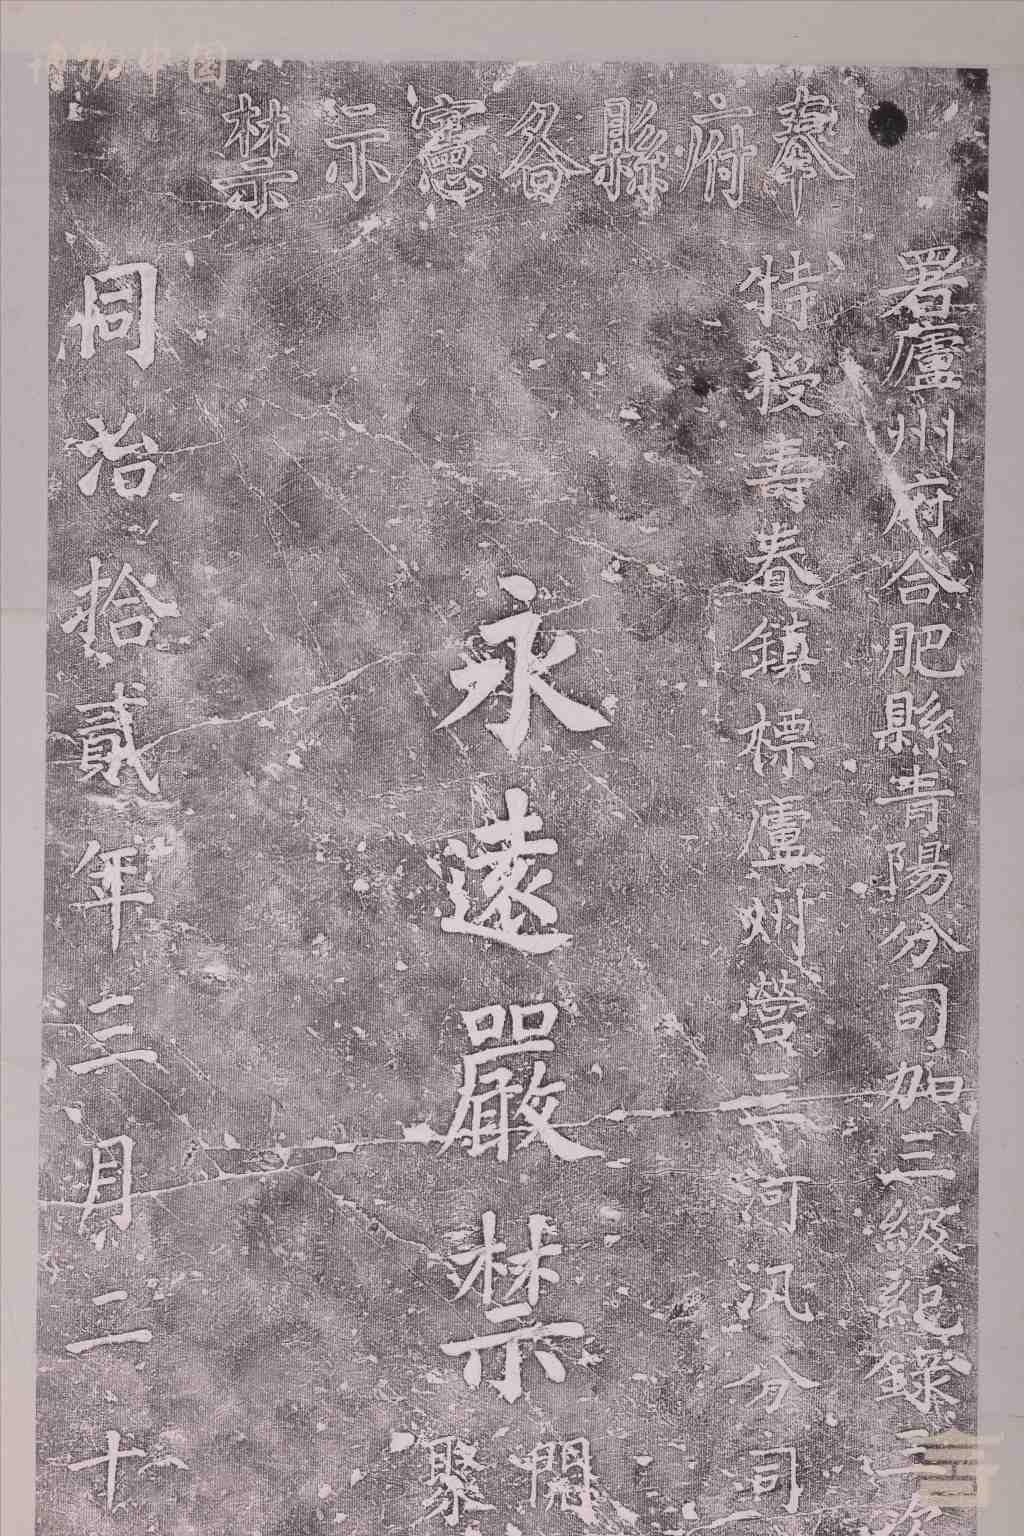 奉府縣各憲示禁
署廬州府合肥縣青陽分司加三級紀錄三
特授壽春鎮標廬州營三河汛分司
永遠嚴禁
開
聚
同治拾貳年三月二十
博物中国